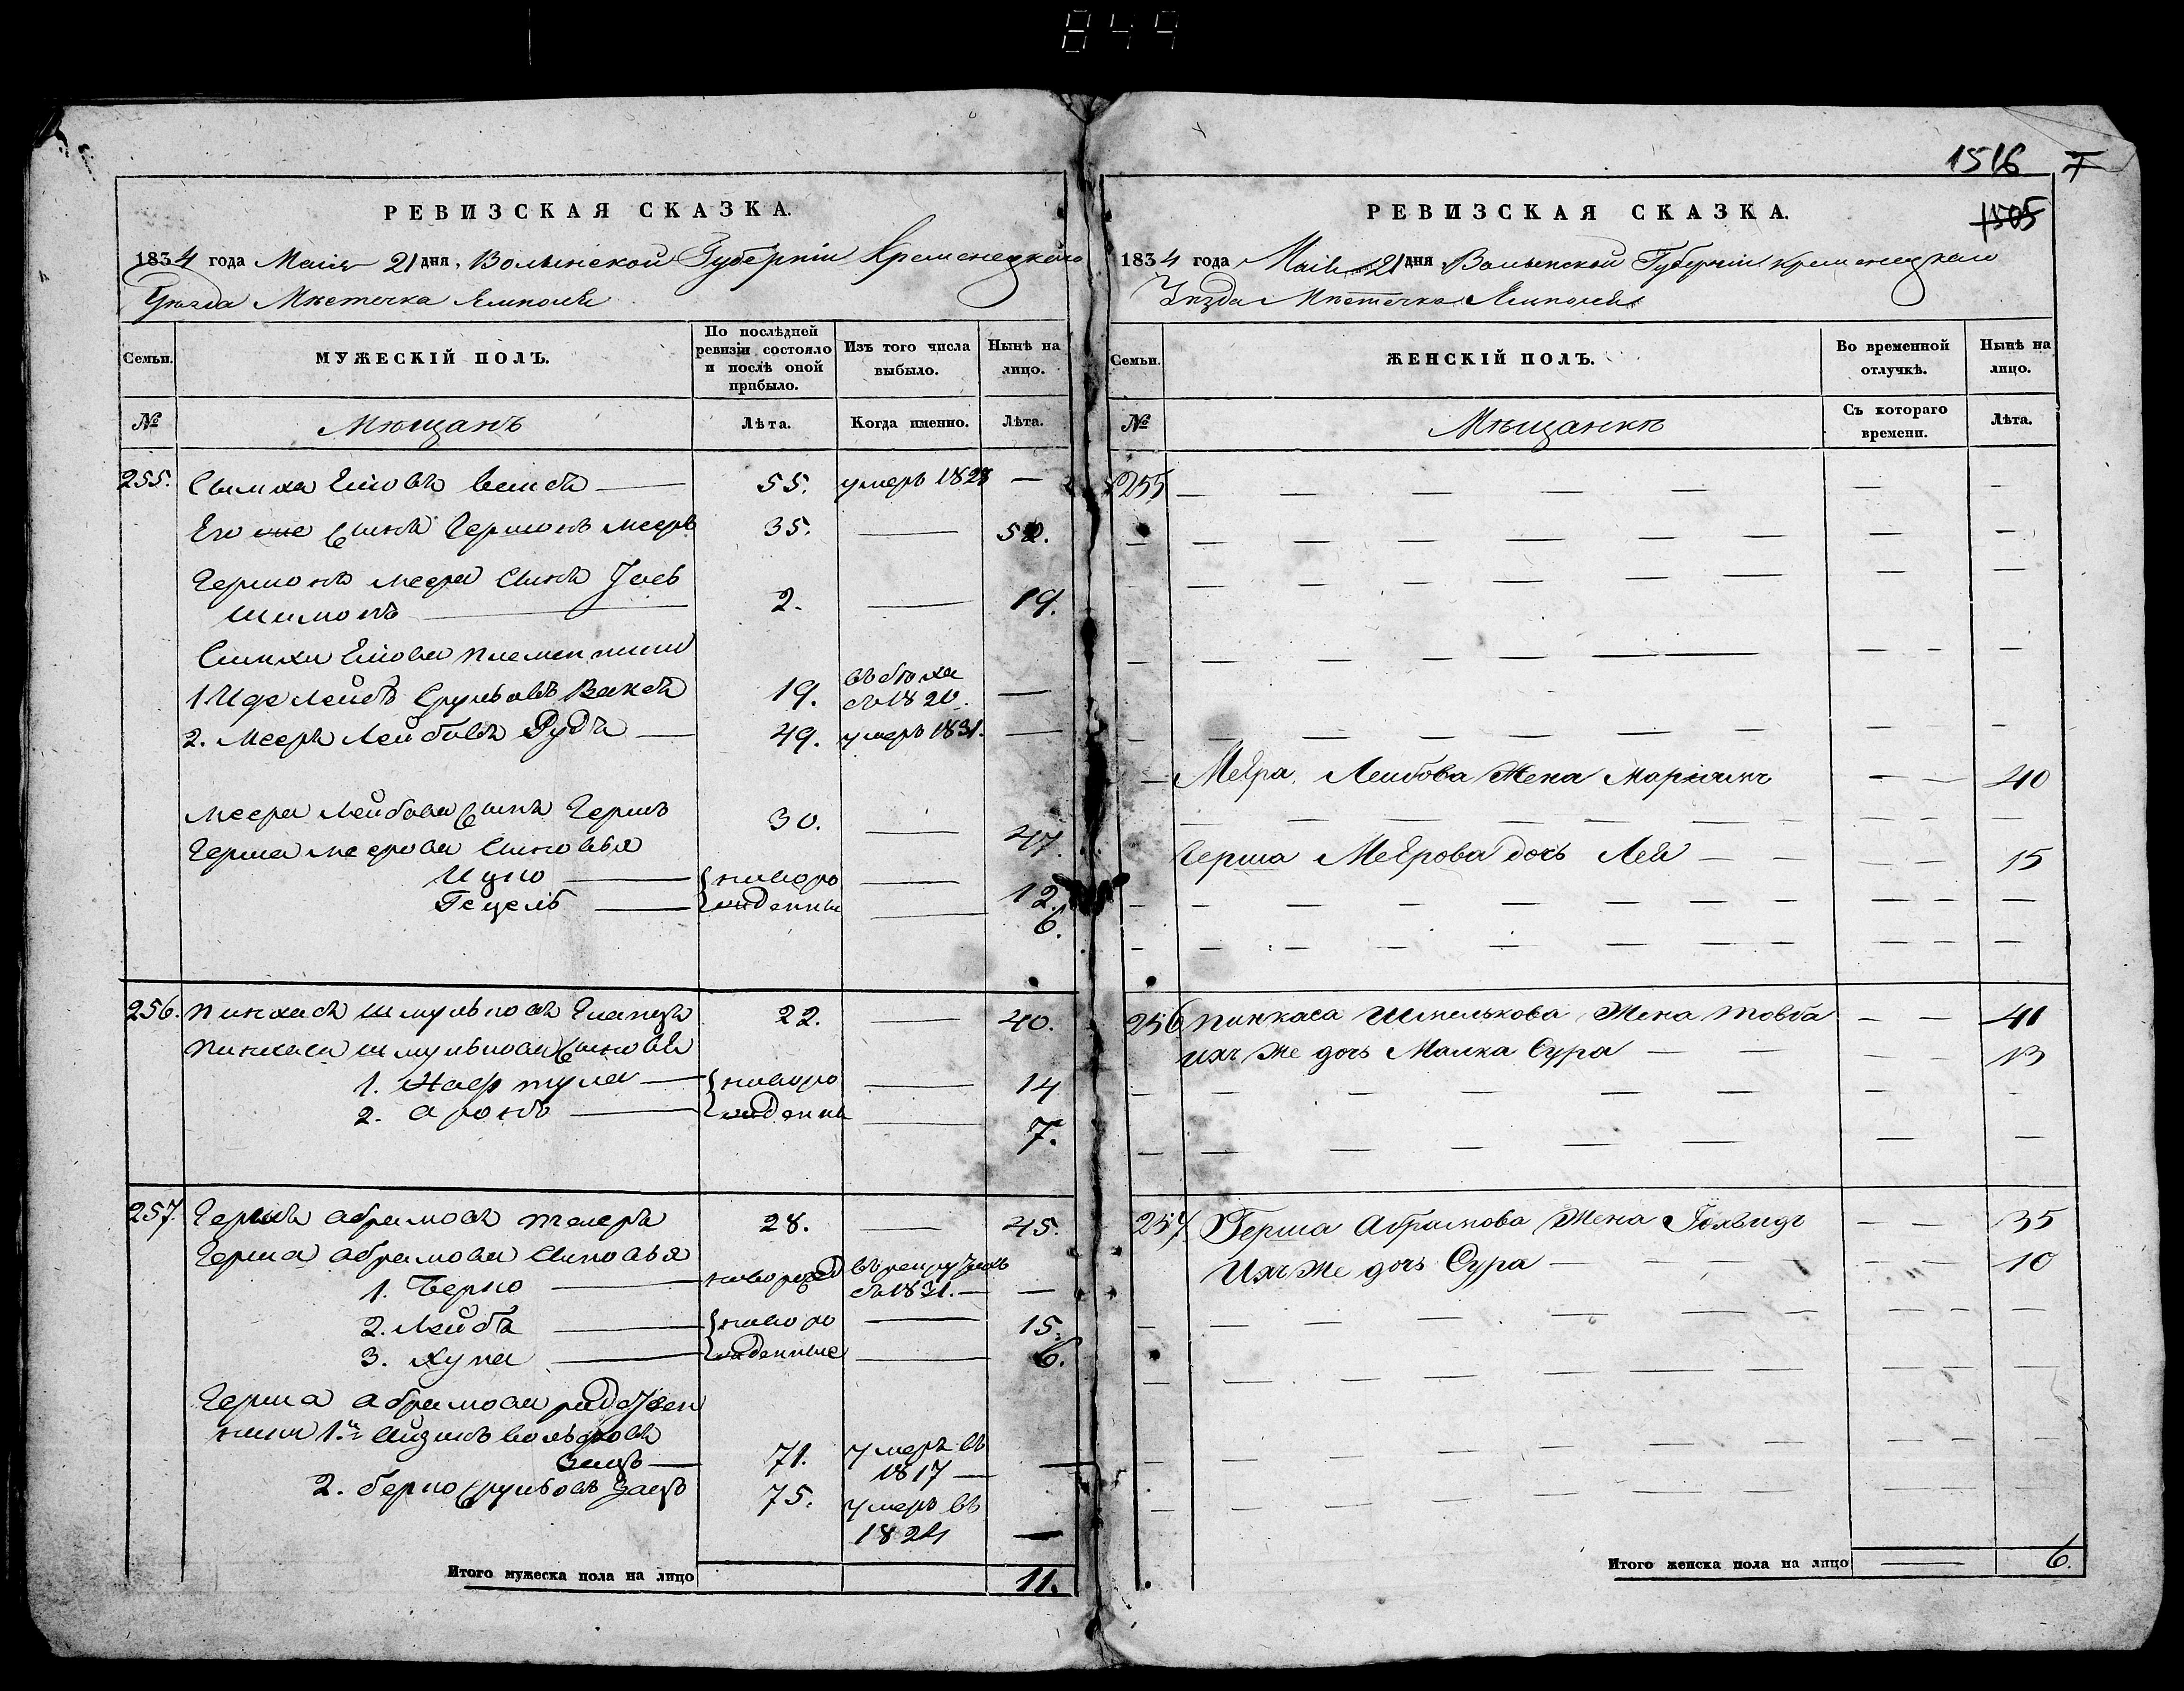 849
РЕВИЗСКАЯ СКАЗКА.
1834 года Маія 21 дня, Волынской Губерніи Кременецкаго
Уѣзда Мѣстечка Ямполя
Семьи.
МУЖЕСКІЙ ПОЛЪ.
По послѣдней ревизіи состояло и послѣ оной прибыло.
Изъ того числа выбыло.
Нынѣ на лицо.
№
Мѣщанъ
Лѣта.
Когда именно.
Лѣта.
255. Симха 55. умеръ 1828 —
Его же сынъ Гершонъ Мееръ 35. — 52.
Гершона Меера сынъ
Шимонъ 2. — 19.
Симхи племянники
1. Лейбъ Сруліовъ 19. въ бѣгах съ 1820. —
2. Мееръ Лейбовъ 49. умеръ 1831. —
Меера Лейбова сынъ Гершъ 30. — 47.
Герша Меерова сыновья
Ицко { новоро — 12.
Гецель { жденные — 6.
256. Пинхасъ Шмульковъ 22. — 40.
Пинхаса Шмулькова сыновья
1. Нафтула { новоро — 14
2. Аронъ { жденны — 7.
257. Гершъ Абрамовъ 28. — 45.
Герша Абрамова сыновья
1. Берко новорожд въ рекрутахъ съ 1831. — —
2. Лейба { новоро — 15.
3. Хуна { жденные — 6.
Герша Абрамова родствен
ники 1й Вольфовъ
Заяцъ 71. умеръ въ 1817 —
2. Берко Сруліовъ Заяцъ 75. умеръ въ
1824 —
Итого мужеска пола на лицо 11.
1516
1505
РЕВИЗСКАЯ СКАЗКА.
1834 года Маія 21 дня Волынской Губерніи Кременецкаго
Уѣзда Мѣстечка Ямполя
Семьи.
ЖЕНСКІЙ ПОЛЪ.
Во временной отлучкѣ.
Нынѣ на лицо.
№
Мѣщанки
Съ котораго времени.
Лѣта.
255
Меера Лейбова Жена 40
Герша Меерова дочь Лея 15
256 Пинкаса Шмелькова Жена Товба 41
Ихъ же дочь Малка Сура 13
257 Герша Абрамова Жена 35
Ихъ Же дочь Сура 10
Итого женска пола на лицо — 6.